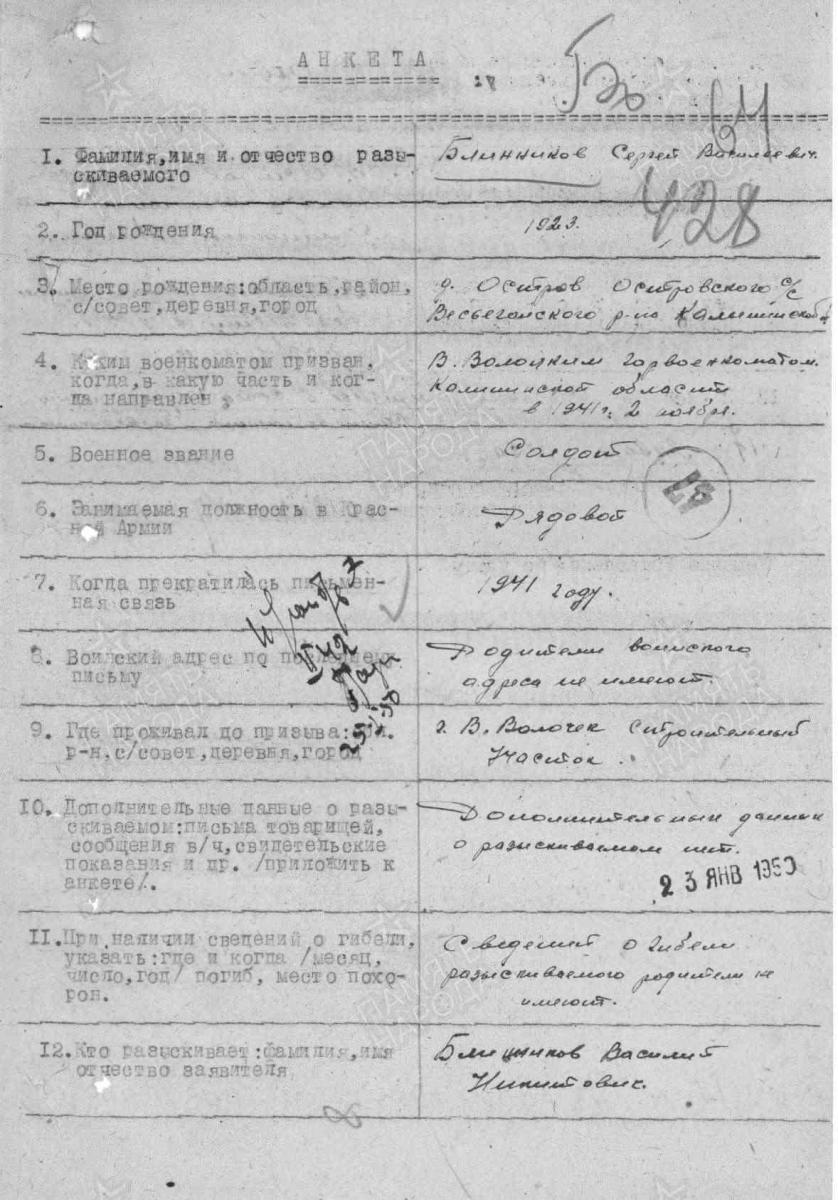 АНКЕТА
Гэо
64
1. Фамилия, имя и отчество разы-
скиваемого
Блинников Сергей Васильевич.
428
2. Год рождения
1923.
3. Место рождения: область, район,
с/совет, деревня, город
д. Остров Островского с/с
Весьегонского р-на Калининской
4. Каким военкоматом призван,
когда, в какую часть и ког-
да направлен
В. Волоцким горвоенкоматом.
Калинской области
в 1941 г. 2 ноября.
5. Военное звание
Солдат
6. Занимаемая должность в Крас-
ной Армии
Рядовой
7. Когда прекратилась письмен-
ная связь
1941 году.
8. Воинский адрес по последнему
письму
Родители воинского
адреса не имеют.
9. Где проживал до призыва:
р-н, с/совет, деревня, город
г. В. Волочек Строительный
участок.
10. Дополнительные данные о разы-
скиваемом: письма товарищей,
сообщения в/ч, свидетельские
показания и др. /приложить к
анкете/.
Дополнительных данных
о разыскиваемом нет.
23 ЯНВ 1950
11. При наличии сведений о гибели,
указать: где и когда /месяц,
число, год/ погиб, место похо-
рон.
Сведений о гибели
разыскиваемого родители не
имеют.
12. Кто разыскивает: фамилия, имя
отчество заявителя
Блинников Василий
Никитович.
ПАМЯТЬ
НАРОДА